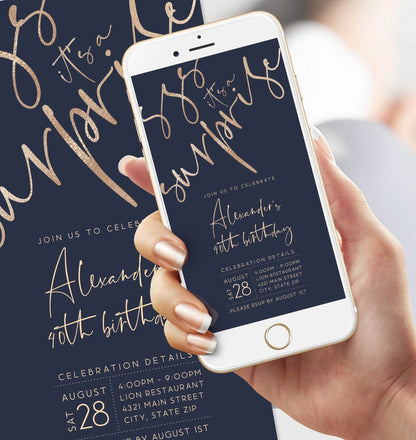 it's a
surprise
JOIN US TO CELEBRA
Alexander
40th birthd
CELEBRATION DETAILS
AUGUST
SAT 28
4:00PM - 9:00PM
LION RESTAURANT
4321 MAIN STREET
CITY, STATE ZIP
AUGUST 1ST
it's a
surprise
JOIN US TO CELEBRATE
Alexander's
40th birthday
CELEBRATION DETAILS
AUGUST
SAT 28
4:00PM - 9:00PM
LION RESTAURANT
4321 MAIN STREET
CITY, STATE ZIP
PLEASE RSVP BY AUGUST 1ST